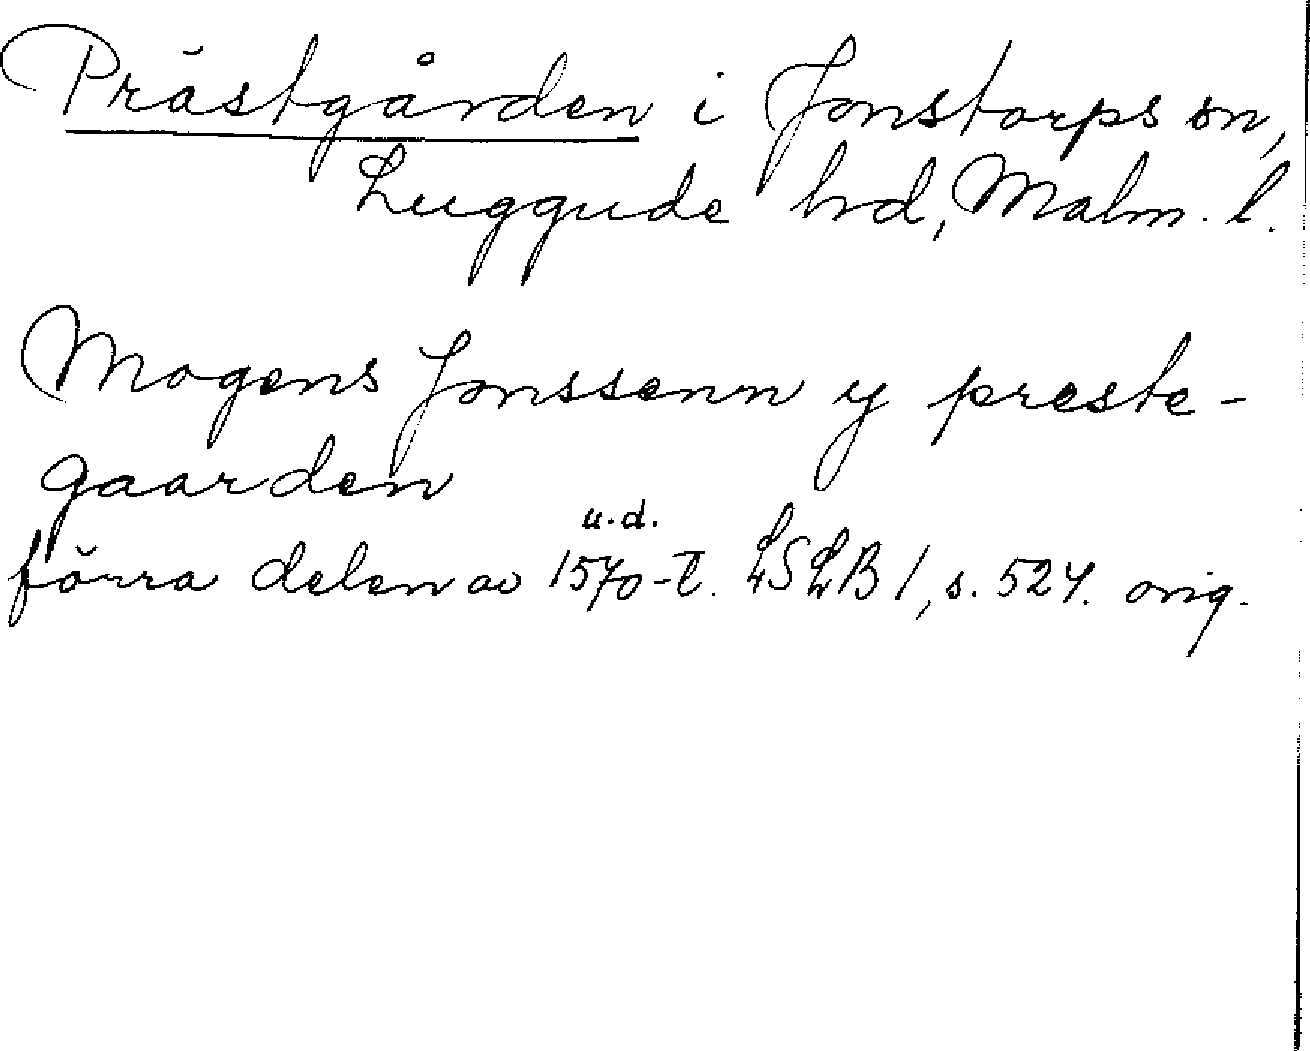 Prästgården i Jonstorps sn,
Luggude hrd, Malm. l.
Mogens Jonssenn y preste-
gaarden
u.d.
förra delen av 1570-t. LSLB 1, s. 524. orig.